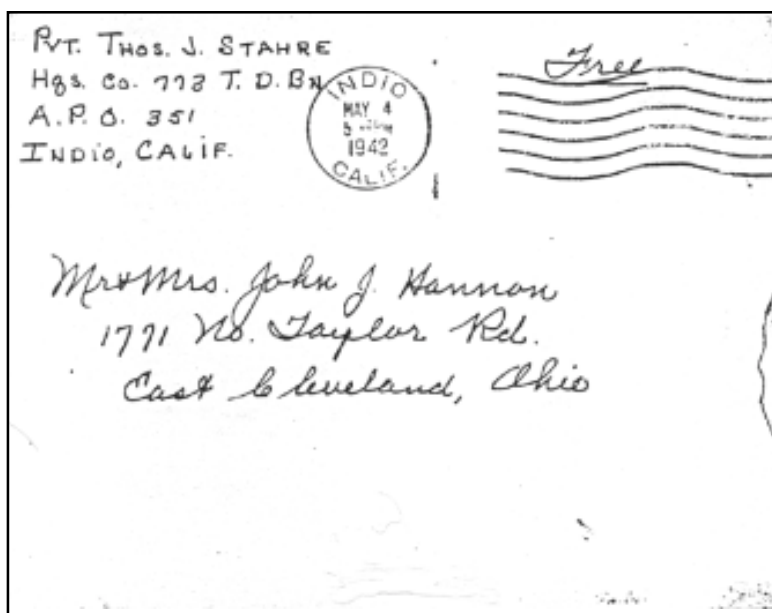 PVT. THOS. J. STAHRE
Hqs. Co. T. D. BN
A. P. O. 351
INDIO, CALIF.
INDIO
MAY 4
1942
CALIF.
Free
Mr & Mrs. John J. Hannon
1771 No. Taylor Rd.
East Cleveland, Ohio